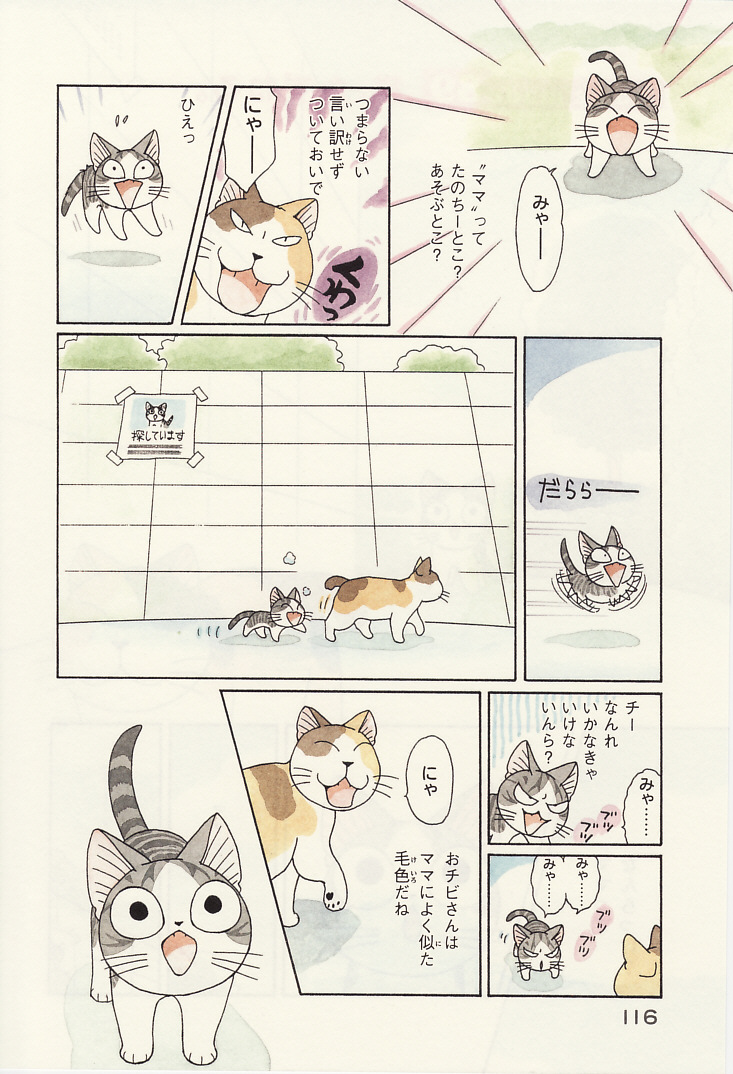 みゃー
〝ママ〟って
たのちーとこ？
あそぶとこ？
つまらない
言い訳せず
ついておいで
にゃー
ひえっ
だらら——
探しています
チー
なんれ
いかなきゃ
いけな
いんら？
みゃ……
ブツ
ブツ
みゃ……
みゃ……
ブツ
ブツ
にゃ
おチビさんは
ママによく似た
毛色だね
116